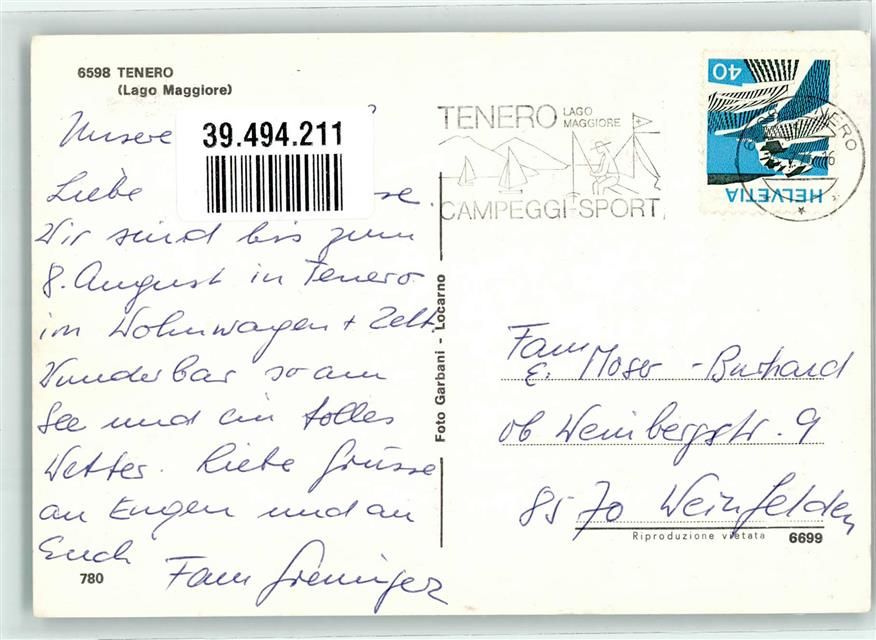 6598 TENERO
(Lago Maggiore)
39.494.211
Unsere
Liebe
Wir sind bis zum
8. August in Tenero
im Wohnwagen + Zelt.
Wunderbar so am
See und ein tolles
Wetter. Liebe Grüsse
an Eugen und an
Euch
Fam
780
Foto Garbani - Locarno
TENERO LAGO
MAGGIORE
CAMPEGGI-SPORT
40
HELVETIA
Fam
E. Moser - Burkard
ob Weinbergstr. 9
8570 Weinfelden
Riproduzione vietata
6699